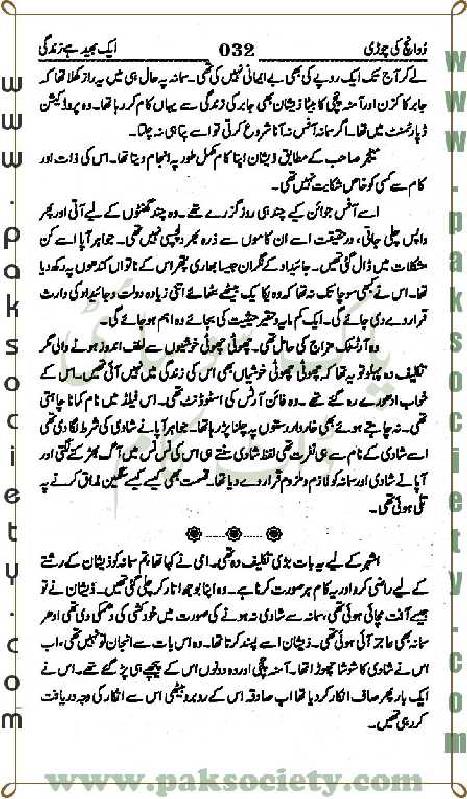 ایک بھید ہے زندگی
032
زوانچ کی چوڑی
لے کر آج تک ایک روپے کی بھی بے ایمانی نہیں کی تھی۔ سمانہ پہ حال ہی میں یہ راز کھلا تھا کہ
جابر کا کزن اور آمنہ چچی کا بیٹا ذیشان بھی جابر کی زندگی سے یہاں کام کر رہا تھا۔ وہ پروڈکیشن
ڈپارٹمنٹ میں تھا۔ اگر سمانہ آفس نہ آنا شروع کرتی تو اسے پتا ہی نہ چلتا۔
منیجر صاحب کے مطابق ذیشان اپنا کام مکمل طور پہ انجام دیتا تھا۔ اس کی ذات اور
کام سے کسی کو خاص شکایت نہیں تھی۔
اسے آفس جوائن کیے چند ہی روز گزرے تھے۔ وہ چند گھنٹوں کے لیے آتی اور پھر
واپس چلی جاتی، درحقیقت اسے ان کاموں سے ذرہ بھر دلچسپی نہیں تھی۔ جواہر آپا اسے کن
مشکلات میں ڈال گئی تھیں۔ جائیداد کے نگران جیسا بھاری پتھر اس کے ناتواں کندھوں پہ رکھ دیا
تھا۔ اس نے کبھی سوچا تک نہ تھا کہ وہ یکا یک بیٹھے بٹھائے اتنی زیادہ دولت و جائیداد کی وارث
قرار دے دی جائے گی۔ ایک کم مایہ و حقیر حیثیت کی بجائے وہ اہم ہو جائے گی۔
وہ آرٹسٹک مزاج کی حامل تھی۔ چھوٹی چھوٹی خوشیوں سے لطف اندوز ہونے والی مگر
تکلیف دہ پہلو تو یہ تھا کہ چھوٹی چھوٹی خوشیاں بھی اس کی زندگی میں نہیں آئی تھیں۔ اس کے
خواب ادھورے رہ گئے تھے۔ وہ فائن آرٹس کی اسٹوڈنٹ تھی۔ اس فیلڈ میں نام کمانا چاہتی
تھی۔ نہ چاہتے ہوئے بھی خاردار رستوں پہ چلنا پڑ رہا تھا۔ جواہر آپا نے شادی کی شرط لگا دی تھی
اسے شادی کے نام سے ہی نفرت تھی لفظ شادی سنتے ہی اس کی نس نس میں آگ بھڑکنے لگتی اور
آپا نے شادی اور سمانہ کو لازم و ملزوم قرار دے دیا تھا۔ قسمت بھی کیسے کیسے سنگین مذاق کرنے پہ
تلی ہوئی تھی۔
اشہر کے لیے یہ بات بڑی تکلیف دہ تھی۔ امی نے کہا تھا تم سمانہ کو ذیشان کے رشتے
کے لیے راضی کرو اور یہ کام ہر صورت کرنا ہے۔ وہ اپنا بوجھ اتار کر چلی گئی تھیں۔ ذیشان نے تو
جیسے آفت مچائی ہوئی تھی، سمانہ سے شادی نہ ہونے کی صورت میں خودکشی کی دھمکی دی تھی ادھر
سمانہ بھی عاجز آئی ہوئی تھی۔ ذیشان اسے پسند کرتا تھا۔ وہ اس بات سے انجان تو نہیں تھی، اب
اس نے شادی کا شوشا چھوڑا تھا۔ آمنہ چچی اور وہ دونوں اس کے پیچھے ہی پڑ گئے تھے۔ اس نے
ایک بار پھر صاف انکار کر دیا تھا اب صادقہ اس کے روبرو بیٹھی اس سے انکار کی وجہ دریافت
کر رہی تھیں۔
www.paksociety.com
www.paksociety.com
www.paksociety.com